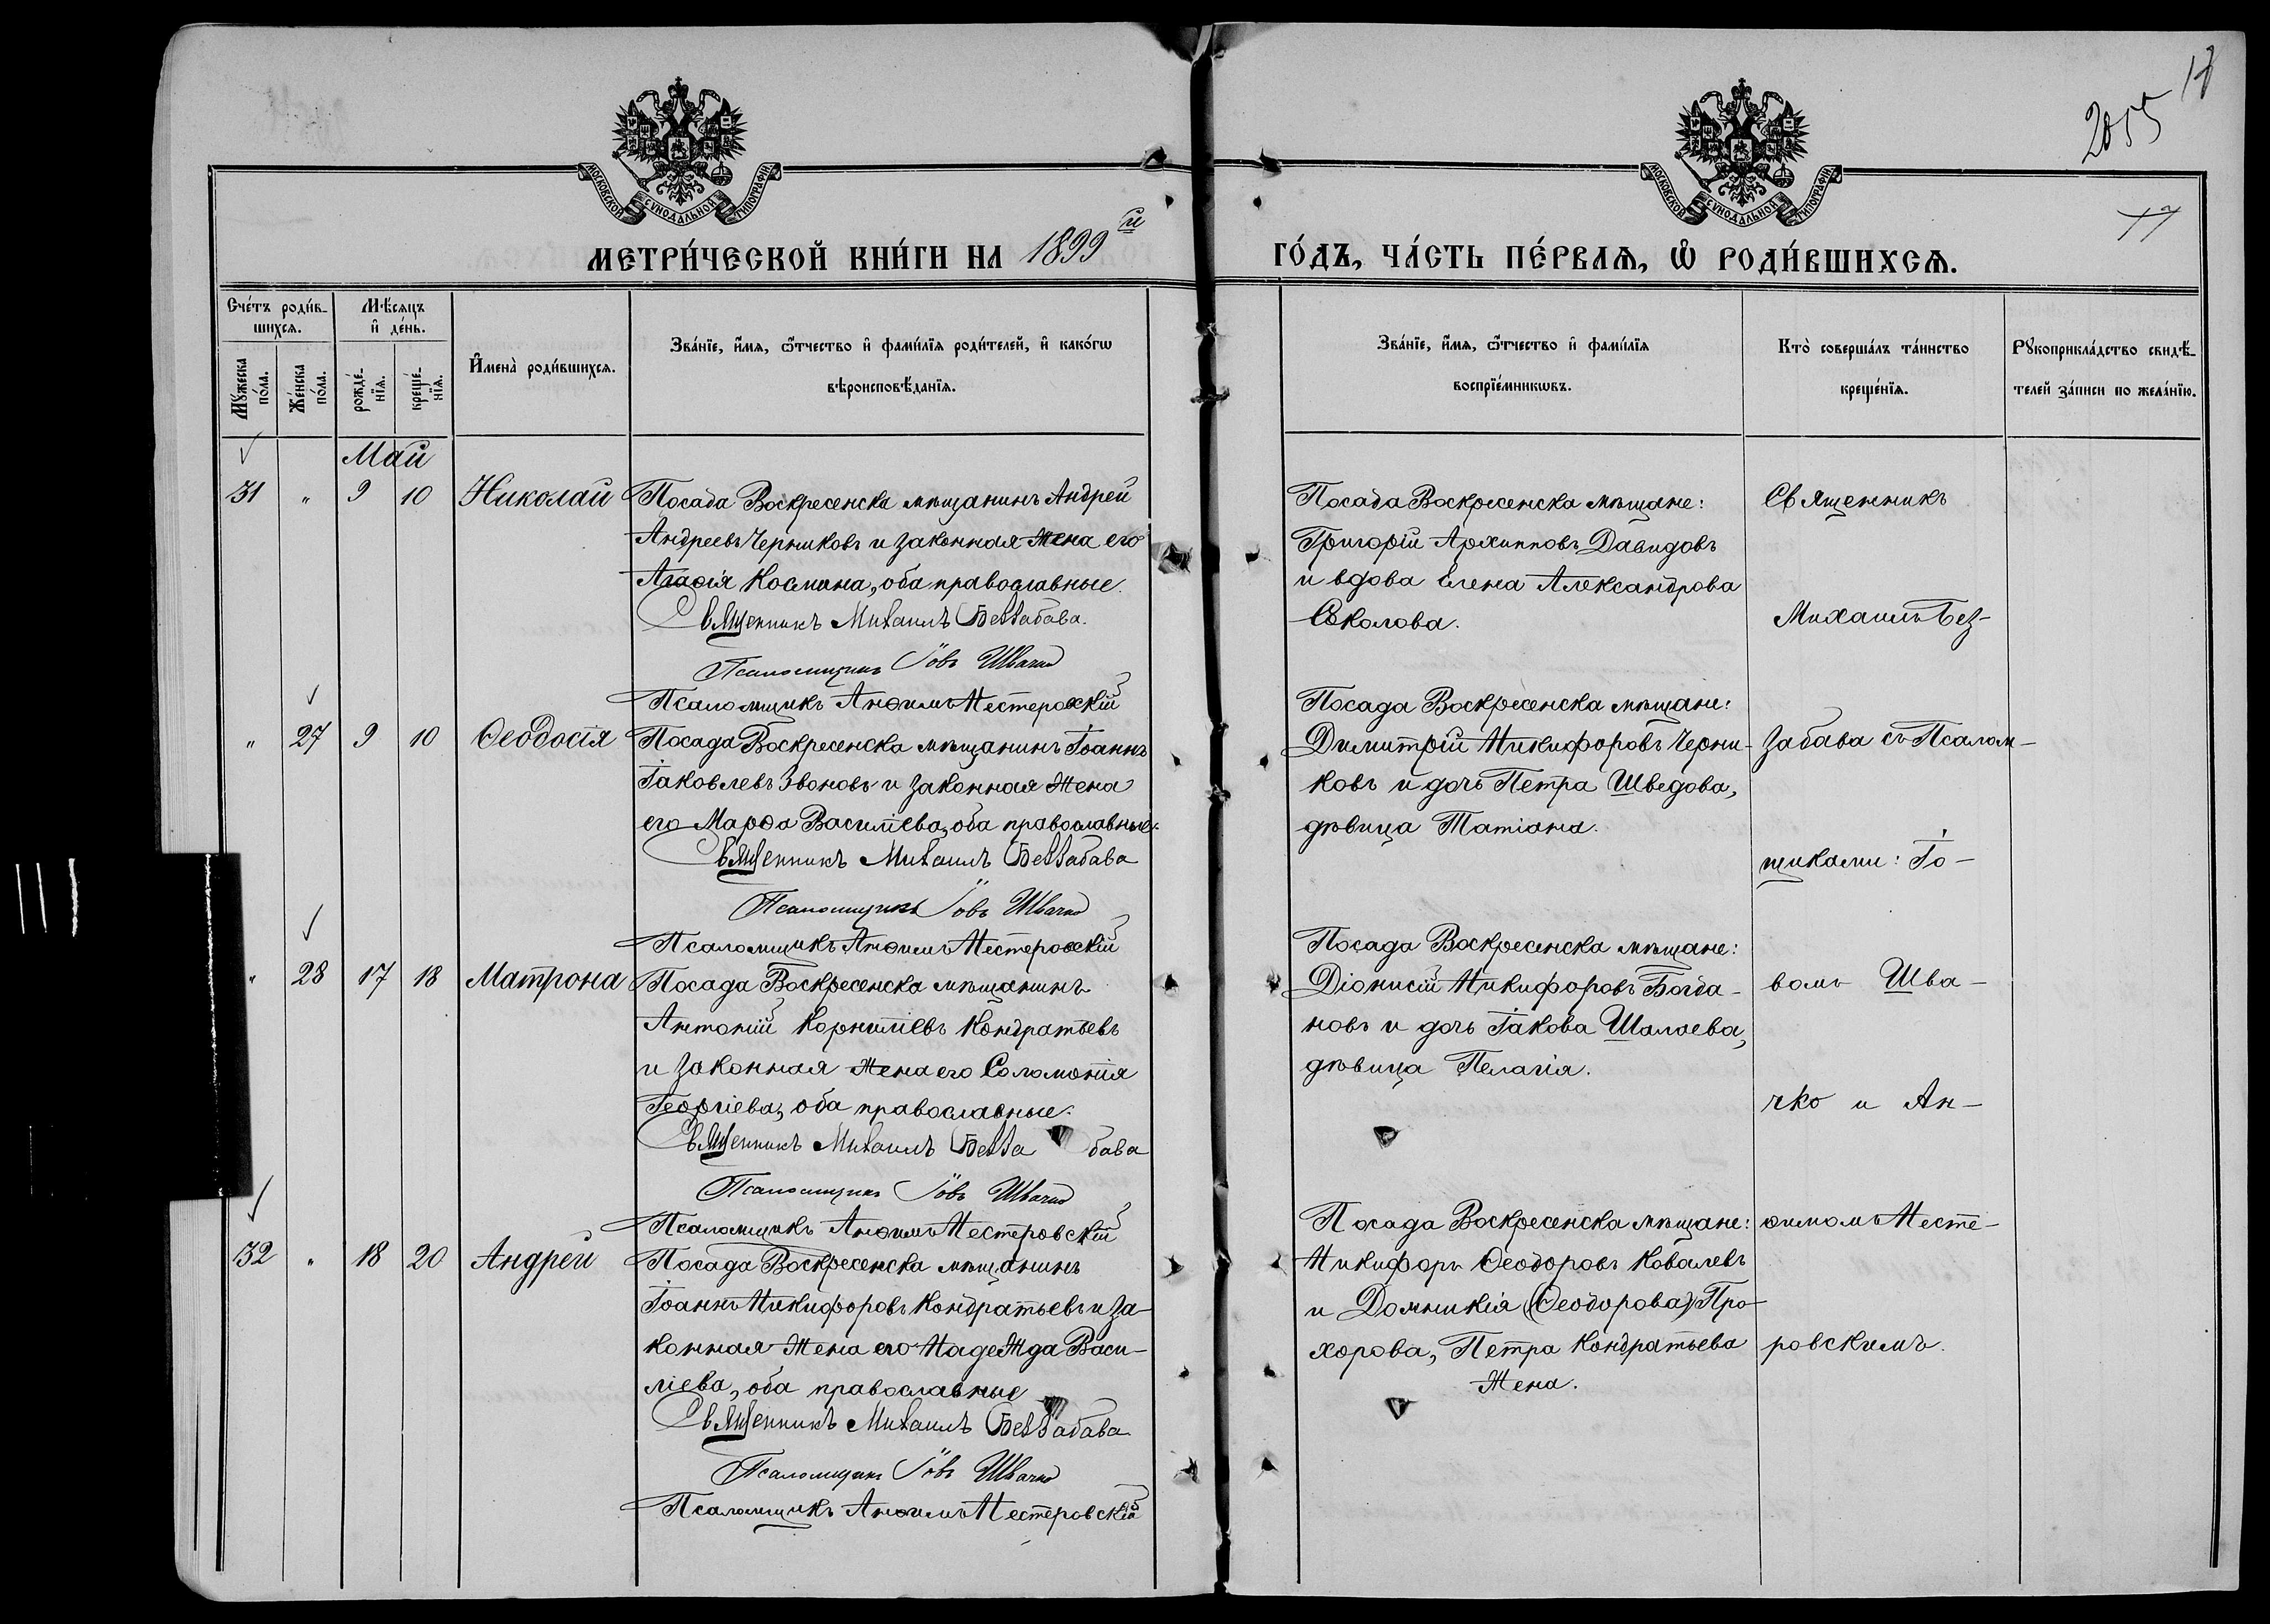 18
2015
17
МОСКОВСКОЙ СѴНОДАЛЬНОЙ ТИПОГРАФІИ
МОСКОВСКОЙ СѴНОДАЛЬНОЙ ТИПОГРАФІИ
МЕТРИ́ЧЕСКОЙ КНИ́ГИ НА 1899 й
ГО́ДЪ, ЧА́СТЬ ПЕ́РВАѦ, Ѽ РОДИ́ВШИХСѦ.
Сче́тъ роди́в-
шихсѧ.
Мꙋ́жеска по́ла.
Же́нска по́ла.
Мѣ́сѧцъ
и҆ де́нь.
рожде́-
нїѧ.
креще́-
нїѧ.
И҆мена̀ роди́вшихсѧ.
Зва́нїе, и҆́мѧ, ѻ҆́тчество и҆ фами́лїѧ роди́телей, и҆ како́гѡ
вѣроисповѣ́данїѧ.
Зва́нїе, и҆́мѧ, ѻ҆́тчество и҆ фами́лїѧ
воспрїе́мникѡвъ.
Кто̀ соверша́лъ та́инство
креще́нїѧ.
Рꙋкоприкла́дство свидѣ́-
телей за́писи по жела́нїю.
Май
31 " 9 10 Николай
Посада Воскресенска мѣщанинъ Андрей
Андреевъ Черниковъ и законная жена его
Агаѳія Космина, оба православные.
Священникъ Михаилъ Беззабава.
Псаломщикъ Іовъ Швачко
Псаломщикъ Анѳимъ Нестеровскій
Посада Воскресенска мѣщане:
Григорій Архипповъ Давидовъ
и вдова Елена Александрова
Соколова.
" 27 9 10 Ѳеодосія
Посада Воскресенска мѣщанинъ Іоаннъ
Іаковлевъ Звоновъ и законная жена
его Марѳа Василіева, оба православные.
Священникъ Михаилъ Беззабава
Псаломщикъ Іовъ Швачко
Псаломщикъ Анѳимъ Нестеровскій
Посада Воскресенска мѣщане:
Димитрій Никифоровъ Черни-
ковъ и дочь Петра Шведова,
дѣвица Татіана.
" 28 17 18 Матрона
Посада Воскресенска мѣщанинъ
Антоній Корниліевъ Кондратьевъ
и законная жена его Соломонія
Георгіева, оба православные.
Священникъ Михаилъ Беззабава
Псаломщикъ Іовъ Швачко
Псаломщикъ Анѳимъ Нестеровскій
Посада Воскресенска мѣщане:
Діонисій Никифоровъ Богда-
новъ и дочь Іакова Шалаева,
дѣвица Пелагія.
32 " 18 20 Андрей
Посада Воскресенска мѣщанинъ
Іоаннъ Никифоровъ Кондратьевъ и за-
конная жена его Надежда Васи-
ліева, оба православные
Священникъ Михаилъ Беззабава
Псаломщикъ Іовъ Швачко
Псаломщикъ Анѳимъ Нестеровскій
Посада Воскресенска мѣщане:
Никифоръ Ѳеодоровъ Ковалевъ
и Домникія (Ѳеодорова) Про-
хорова, Петра Кондратьева
жена.
Священникъ
Михаилъ Без-
забава съ Псалом-
щиками: Іо-
вомъ Шва-
чко и Ан-
ѳимомъ Несте-
ровскимъ.